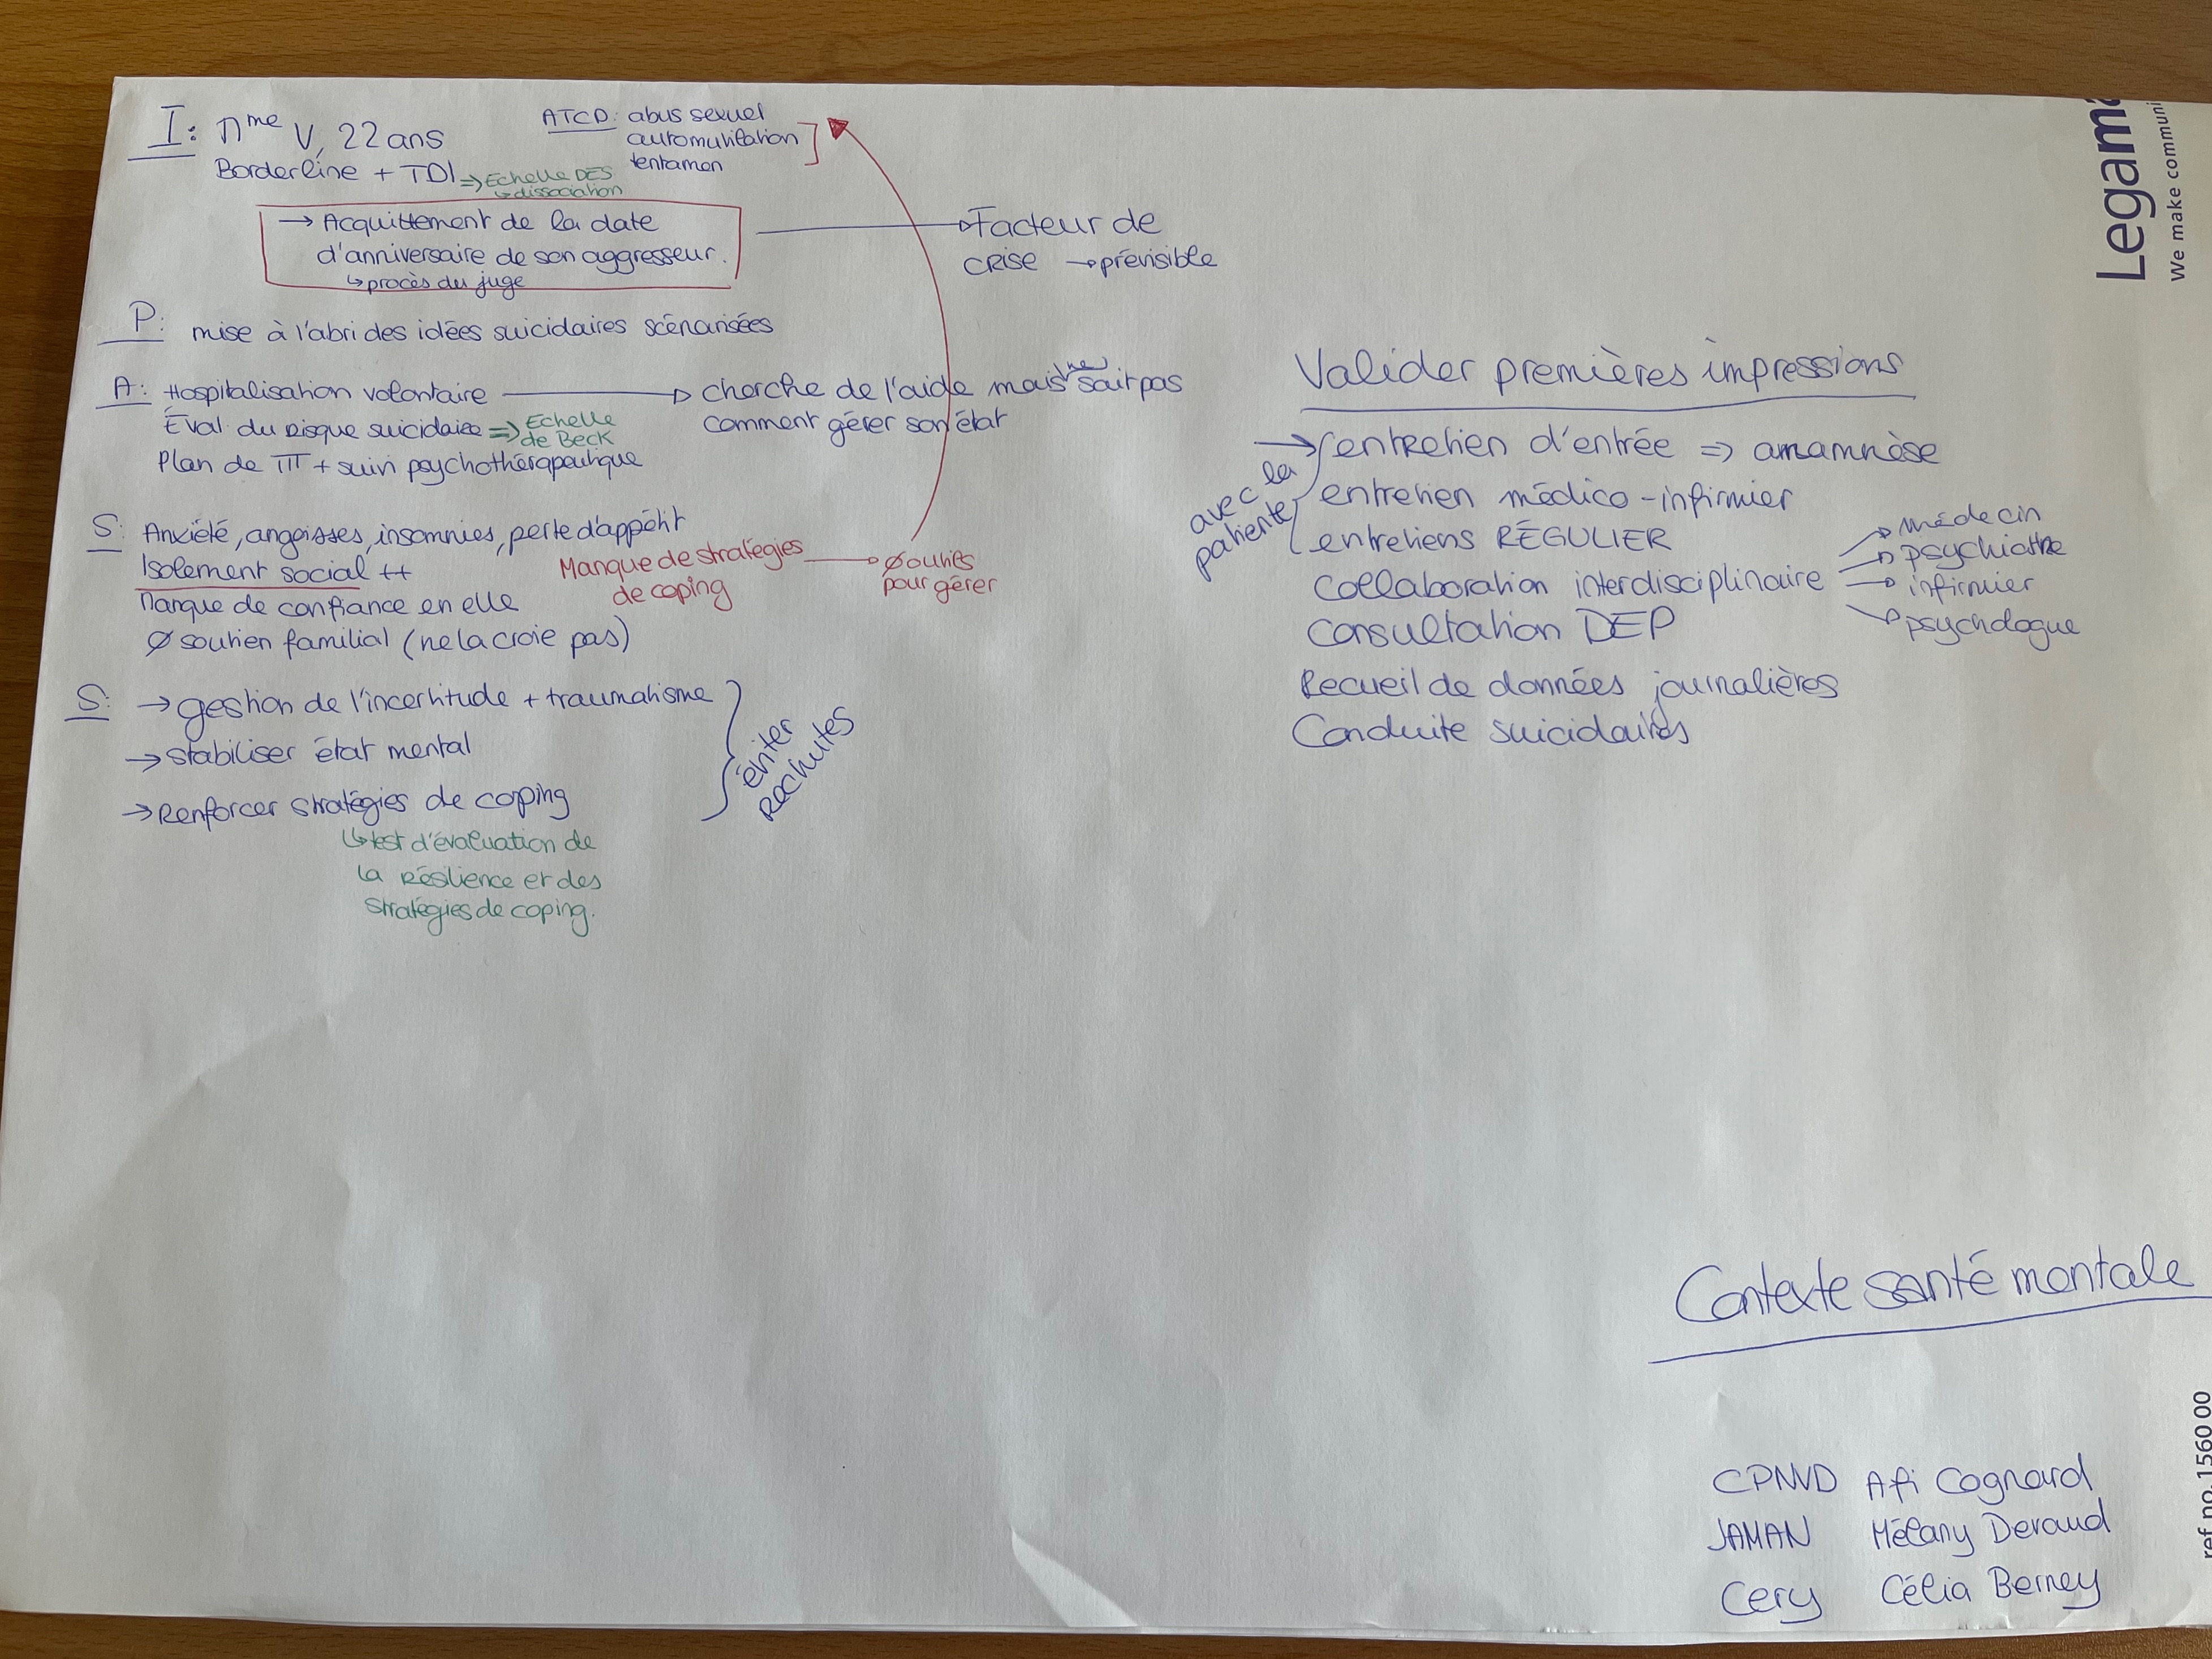 I: Mme V, 22 ans
Borderline + TDI => Echelle DES
↳ dissociation
ATCD: abus sexuel
automutilation
tentamen
→ Acquittement de la date
d'anniversaire de son aggresseur.
↳ procès du juge
→ Facteur de
CRISE → prévisible
P: mise à l'abri des idées suicidaires scénarisées
A: Hospitalisation volontaire → cherche de l'aide mais ne sait pas
comment gérer son état
Éval du risque suicidaire => Echelle
de Beck
Plan de TTT + suivi psychothérapeutique
S: Anxiété, angoisses, insomnies, perte d'appétit
Isolement social ++
Manque de confiance en elle
Ø soutien familial (ne la croie pas)
Manque de stratégies
de coping
→ Ø outils
pour gérer
S: → gestion de l'incertitude + traumatisme
→ stabiliser état mental
→ Renforcer stratégies de coping
↳ test d'évaluation de
la résilience et des
stratégies de coping.
éviter
Rechutes
Valider premières impressions
→ entretien d'entrée => anamnèse
entretien médico-infirmier
entretiens RÉGULIER
avec la
patiente
Collaboration interdisciplinaire
→ médecin
→ psychiatre
→ infirmier
→ psychologue
Consultation DEP
Recueil de données journalières
Conduite suicidaires
Contexte santé mentale
CPNVD Afi Cognard
JAMAN Mélany Deraud
Cery Célia Berney
Legama
We make communi
ref no. 1560 00